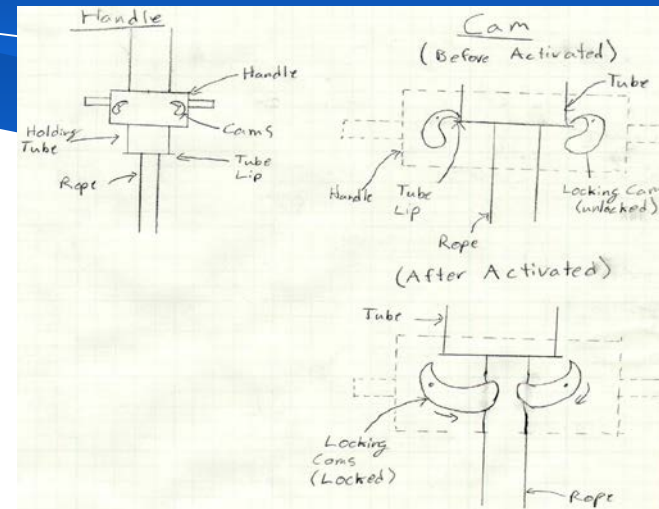 Handle
Handle
Cams
Holding
Tube
Tube
Lip
Rope
Cam
(Before Activated)
Tube
Handle
Tube
Lip
Locking Cam
(unlocked)
Rope
(After Activated)
Tube
Locking
Cams
(Locked)
Rope